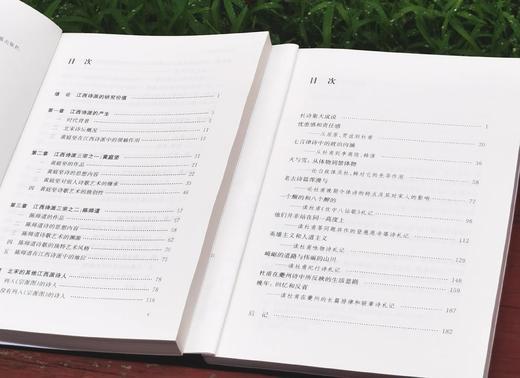 目 次
绪 论 江西诗派的研究价值 1
第一章 江西诗派的产生
一 时代背景
二 北宋诗坛概况
三 黄庭坚在江西诗派中的领袖作用
第二章 江西诗派三宗之一:黄庭坚
一 黄庭坚的作品
二 黄庭坚诗的思想内容
三 黄庭坚对前人诗歌艺术的继承
四 黄庭坚诗歌艺术的独创性
第三章 江西诗派三宗之二:陈师道
一 陈师道的作品
二 陈师道诗的思想内容
三 陈师道诗歌艺术的渊源
四 陈师道诗歌的独特艺术风格
五 陈师道在江西诗派中的地位
北宋的其他江西派诗人 78
列入《宗派图》的诗人 78
没有列入《宗派图》的诗人 116
目 次
杜诗集大成说 1
忧患感和责任感
——从屈原、贾谊到杜甫 20
七言律诗中的政治内涵
——从杜甫到李商隐、韩偓
火与雪:从体物到禁体物
——论白战体及杜、韩对它的先导作用
老去诗篇浑漫与
——论杜甫晚期今体诗的特点及其对宋人的影响
一个醒的和八个醉的
——读杜甫《饮中八仙歌》札记
他们并非站在同一高度上
——读杜甫等同题共作的登慈恩寺塔诗札记
英雄主义和人道主义
——读杜甫咏物诗札记 129
崎岖的道路与伟丽的山川
——读杜甫纪行诗札记 146
杜甫在夔州诗中所反映的生活悲剧 159
晚年:回忆和反省
——读杜甫在夔州的长篇排律和联章诗札记 167
后 记 182